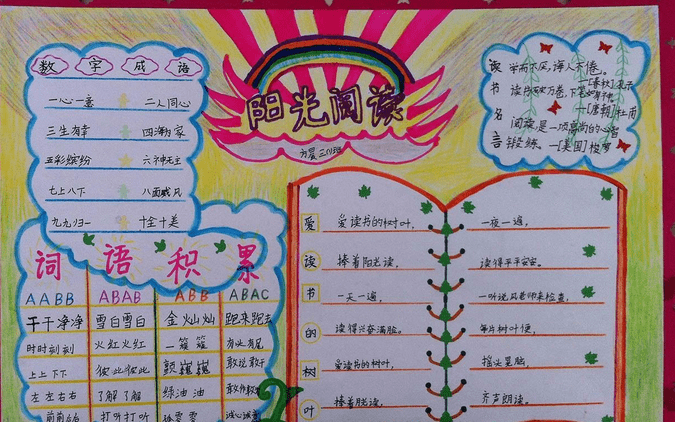 数字成语
一心一意 二人同心
三生有幸 四海为家
五彩缤纷 六神无主
七上八下 八面威风
九九归一 十全十美
阳光阅读
方晨三(1)班
读书名言
学而不厌,诲人不倦。
—[春秋]孔子
读书破万卷,下笔如有神。
—[唐朝]杜甫
阅读是一项高尚的心智
锻练。—[美国]梭罗
词语积累
AABB ABAB ABB ABAC
干干净净 雪白雪白 金灿灿 跑来跑去
时时刻刻 火红火红 一簇簇 有头有尾
上上下下 彼此彼此 颤巍巍 敢说敢干
左左右右 了解了解 绿油油
打听打听 诚心诚意
爱读书的树叶
爱读书的树叶,
捧着阳光读,
一天一遍,
读得兴奋满脸。
爱读书的树叶,
捧着月光读,
一夜一遍,
读得平平安安。
一听说风老师来检查,
每片树叶便,
摇头晃脑,
齐声朗读。